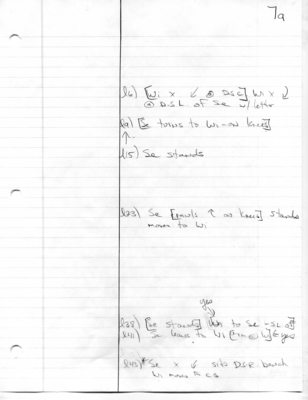 7a
l6) [Wi x ↙ @ DSC] Wi x
@ DSL of Se w/ letter
la) [Se turns to Wi-on knees]
↑
l15) Se stands
l23) Se [ ↑ on knees] stands
moves to Wi
yes
l38) [Se stands] Wi to Se - SL of
l41) Se to Wi yes
l45) Se x ↙ sits DSR bench
Wi moves to CS